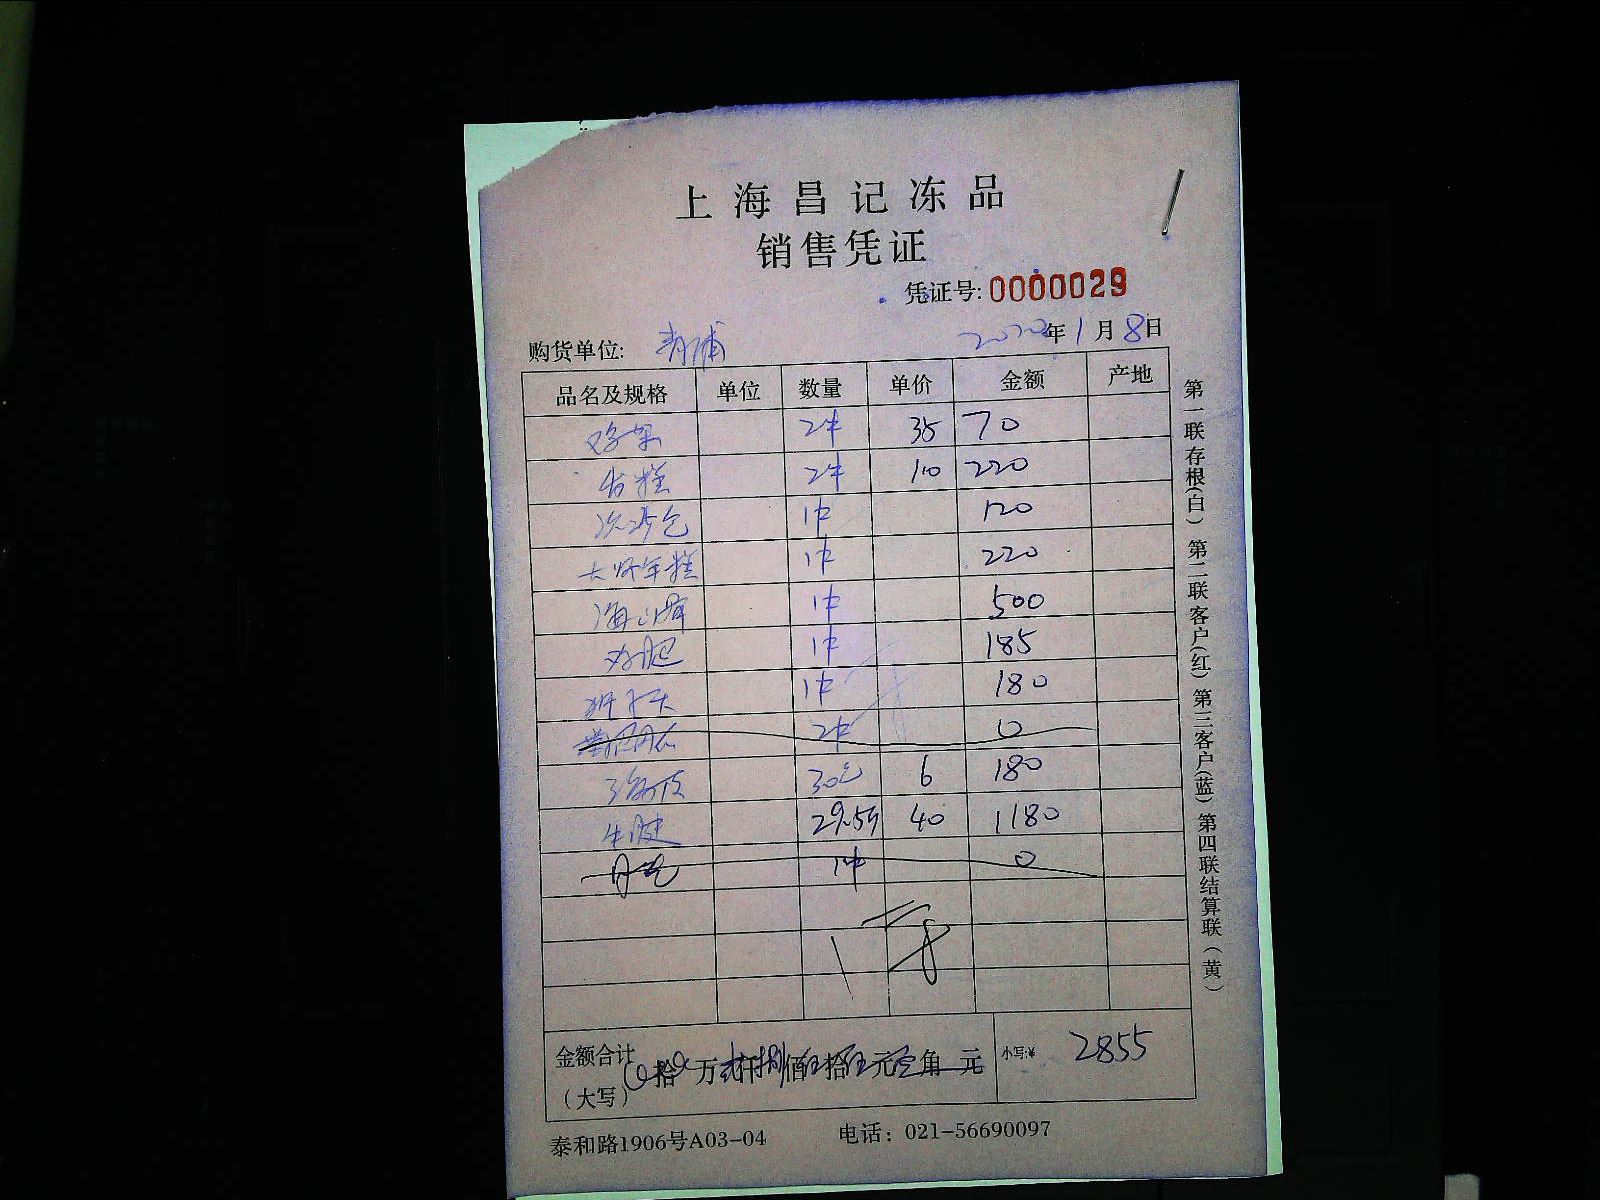 上海昌记冻品
销售凭证
凭证号: 0000029
购货单位: 青浦 2020年1月8日
品名及规格 单位 数量 单价 金额 产地
鸡架 2件 35 70
年糕 2件 110 220
包 1件 120
大 年糕 1件 220
海 1件 500
鸡腿 1件 185
1件 180
2件 0
皮 30 6 180
牛腱 29.5斤 40 1180
1件 0
金额合计
(大写) 拾 万 贰仟捌佰伍拾伍元 角 元 小写:¥ 2855
泰和路1906号A03-04 电话: 021-56690097
第一联存根(白) 第二联客户(红) 第三客户(蓝) 第四联结算联(黄)